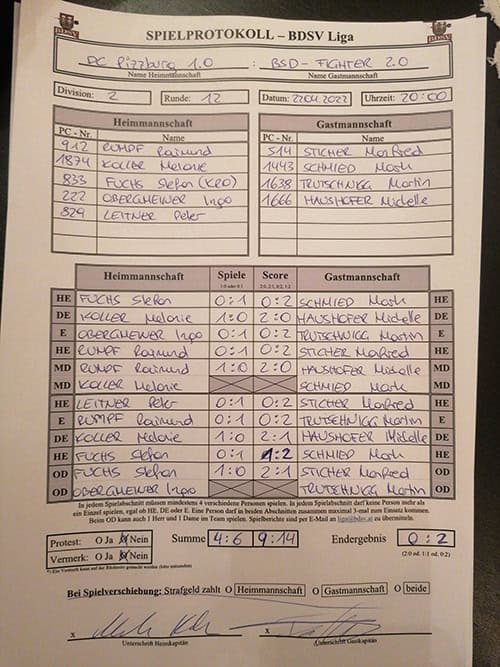 SPIELPROTOKOLL – BDSV Liga
DC Pizzburg 1.0 : BSD-FIGHTER 2.0
Name Heimmannschaft Name Gastmannschaft
Division: 2 Runde: 12 Datum: 22.04.2022 Uhrzeit: 20:00
Heimmannschaft Gastmannschaft
PC - Nr. Name PC - Nr. Name
912 RUMPF Raimund 514 STICHER Manfred
1874 KOLLER Melanie 1443 SCHMIED Mark
833 FUCHS Stefan (KRO) 1638 TRUTSCHNIGG Martin
222 OBERGMEINER Ingo 1666 HAUSHOFER Michelle
829 LEITNER Peter
Heimmannschaft Spiele Score Gastmannschaft
1:0 oder 0:1 2:0, 2:1, 0:2, 1:2
HE FUCHS Stefan 0:1 0:2 SCHMIED Mark HE
DE KOLLER Melanie 1:0 2:0 HAUSHOFER Michelle DE
E OBERGMEINER Ingo 0:1 0:2 TRUTSCHNIGG Martin E
HE RUMPF Raimund 0:1 0:2 STICHER Manfred HE
MD RUMPF Raimund 1:0 2:0 HAUSHOFER Michelle MD
MD KOLLER Melanie SCHMIED Mark MD
HE LEITNER Peter 0:1 0:2 STICHER Manfred HE
E RUMPF Raimund 0:1 0:2 TRUTSCHNIGG Martin E
DE KOLLER Melanie 1:0 2:1 HAUSHOFER Michelle DE
HE FUCHS Stefan 0:1 1:2 SCHMIED Mark HE
OD FUCHS Stefan 1:0 2:1 STICHER Manfred OD
OD OBERGMEINER Ingo TRUTSCHNIGG Martin OD
In jedem Spielabschnitt müssen mindestens 4 verschiedene Personen spielen. In jedem Spielabschnitt darf keine Person mehr als
ein Einzel spielen, egal ob HE, DE oder E. Eine Person darf in beiden Abschnitten zusammen maximal 3-mal zum Einsatz kommen.
Beim OD kann auch 1 Herr und 1 Dame im Team spielen. Spielberichte sind per E-Mail an liga@bdsv.at zu übermitteln.
Protest: O Ja O Nein Summe 4:6 9:14 Endergebnis 0:2
Vermerk: O Ja O Nein (2:0 od. 1:1 od. 0:2)
Bei Spielverschiebung: Strafgeld zahlt O Heimmannschaft O Gastmannschaft O beide
x x
Unterschrift Heimkapitän Unterschrift Gastkapitän